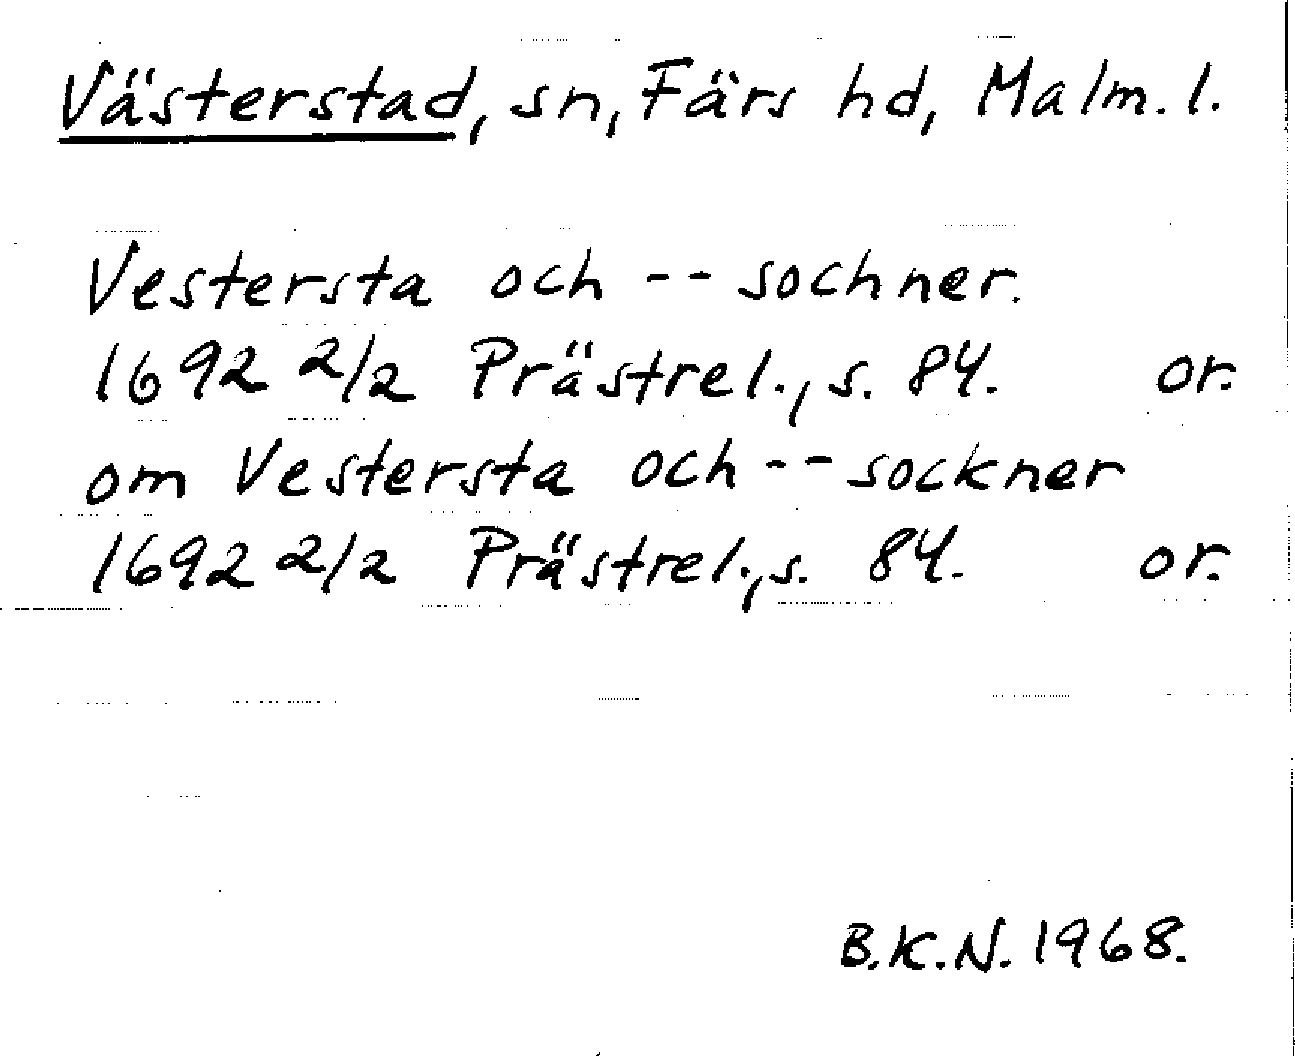 Västerstad, sn, Färs hd, Malm. l.
Vestersta och -- sochner.
1692 2/2 Prästrel., s. 84. or.
om Vestersta och -- sockner
1692 2/2 Prästrel., s. 84. or.
B.K.N. 1968.